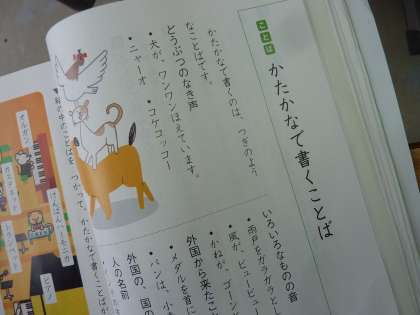 ことば
かたかなで書くことば
かたかなで書くのは、つぎのよう
なことばです。
どうぶつのなき声
・犬が、ワンワンほえています。
・ニャーオ ・コケコッコー
いろいろなものの音
・雨戸をガラガラと
・風が、ビュービュー
・かねが、ゴーン
外国から来たこ
・メダルを首に
・パンは、小
外国の、国の
人の名前
つかって、かたかなで書くことばが
オルガン
けんばんハーモニカ
ピアノ